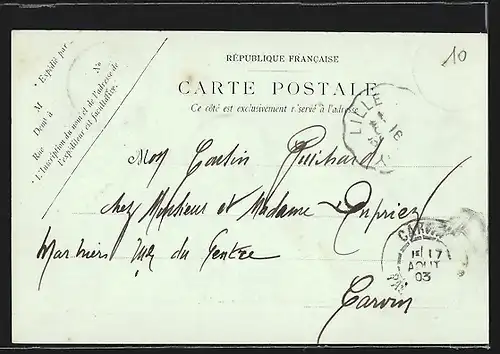 10
RÉPUBLIQUE FRANÇAISE
CARTE POSTALE
Ce côté est exclusivement réservé à l'adresse
Expédié par
M
Demt à
Rue No
L'Inscription du nom et de l'adresse de
l'expéditeur est facultative.
LILLE
16
chez Monsieur et Madame Dupriez
du Centre
Carvin
CARVIN
17
AOUT
03